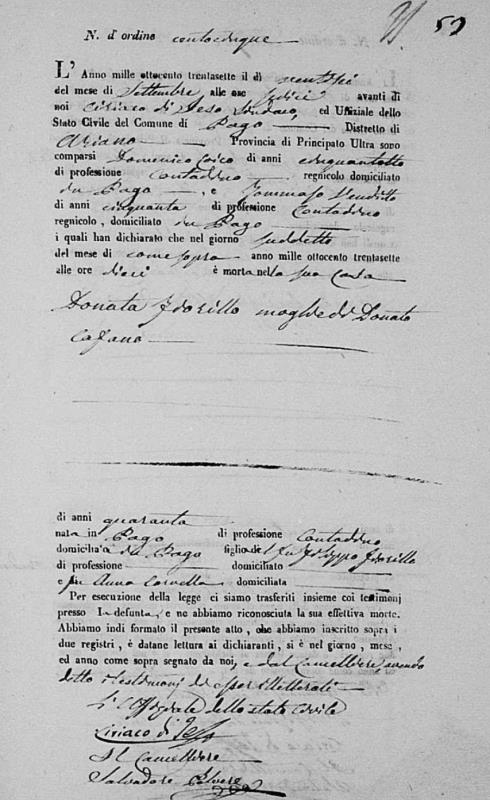 N. d'ordine centocinque
59
L'Anno mille ottocento trentasette il dì ventisei
del mese di Settembre, alle ore sedici avanti di
noi Ciriaco di Jeso Sindaco, ed Uffiziale dello
Stato Civile del Comune di Pago Distretto di
Ariano Provincia di Principato Ultra sono
comparsi Domenico di anni cinquantotto
di professione Contadino regnicolo domiciliato
in Pago, e Tommaso Venditto
di anni cinquanta di professione Contadino
regnicolo, domiciliato in Pago
i quali han dichiarato che nel giorno suddetto
del mese di come sopra anno mille ottocento trentasette
alle ore dieci è morta nella sua casa
Donata Iorillo moglie di Donato
Cafano
di anni quaranta
nata in Pago di professione Contadina
domiciliata in Pago figlia del fu Filippo Iorillo
di professione domiciliato
e fu Anna domiciliata
Per esecuzione della legge ci siamo trasferiti insieme coi testimonj
presso la defunta, e ne abbiamo riconosciuta la sua effettiva morte.
Abbiamo indi formato il presente atto, che abbiamo inscritto sopra i
due registri, e datane lettura ai dichiaranti, si è nel giorno, mese,
ed anno come sopra segnato da noi, e dal Cancelliere, avendo
detto i testimonj di essere illetterati
L'Uffiziale dello stato civile
Ciriaco di Jeso
Il Cancelliere
Salvadore Polvere